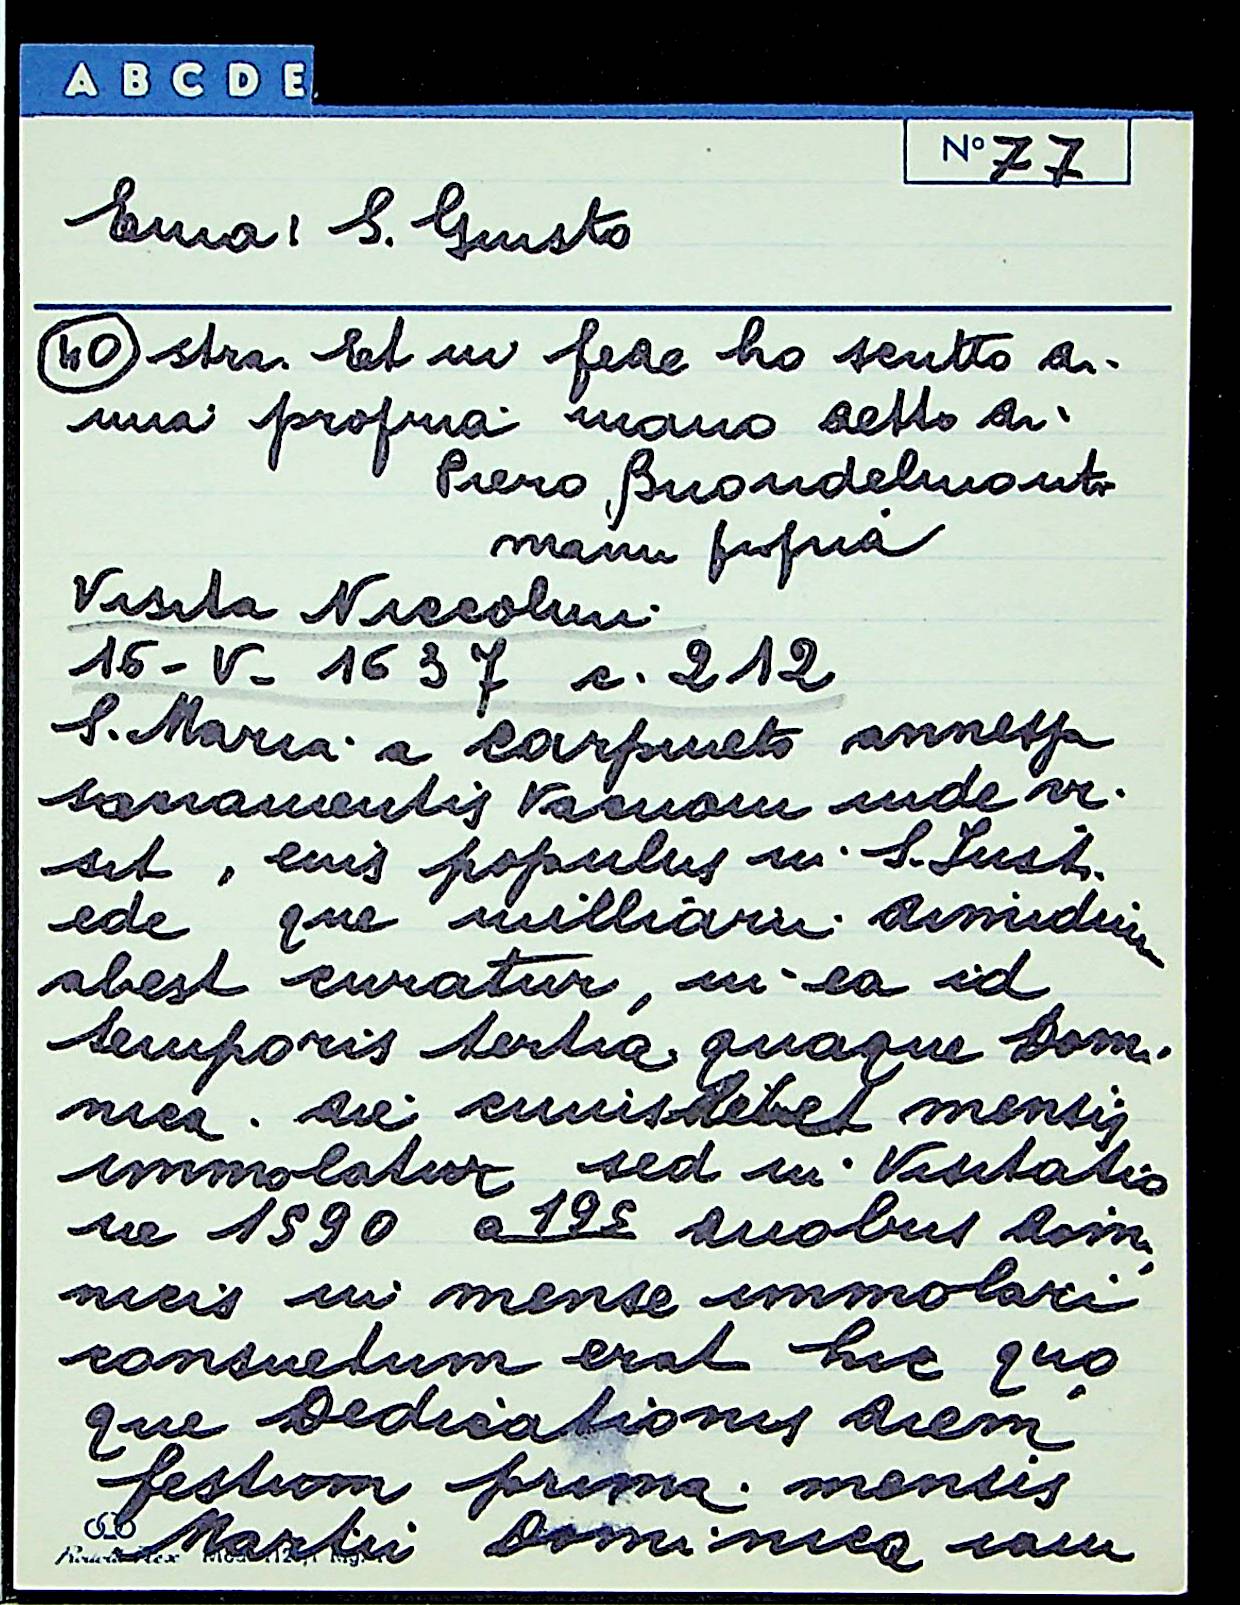 A B C D E
Nº 77
Ema: S. Giusto
40 stra. Et in fede ho scritto di
mia propria mano detto dì
Piero Buondelmonti
manu propria
Visita Niccolini
16-V-1637 c. 212
S. Maria a Carpineto annessa
sacramentis vacuam inde vi-
sit, cuius populus in S. Justi
ede que milliari dimidium
abest curatur, in ea id
temporis tertia quaque Dom.
nica die cuiuslibet mensis
immolatur sed in Visitatio
ne 1590 a 195 duobus domi,
nicis in mense immolari
consuetum erat hic quo
que Dedicationis diem
festum prima mensis
Martii Dominica iam